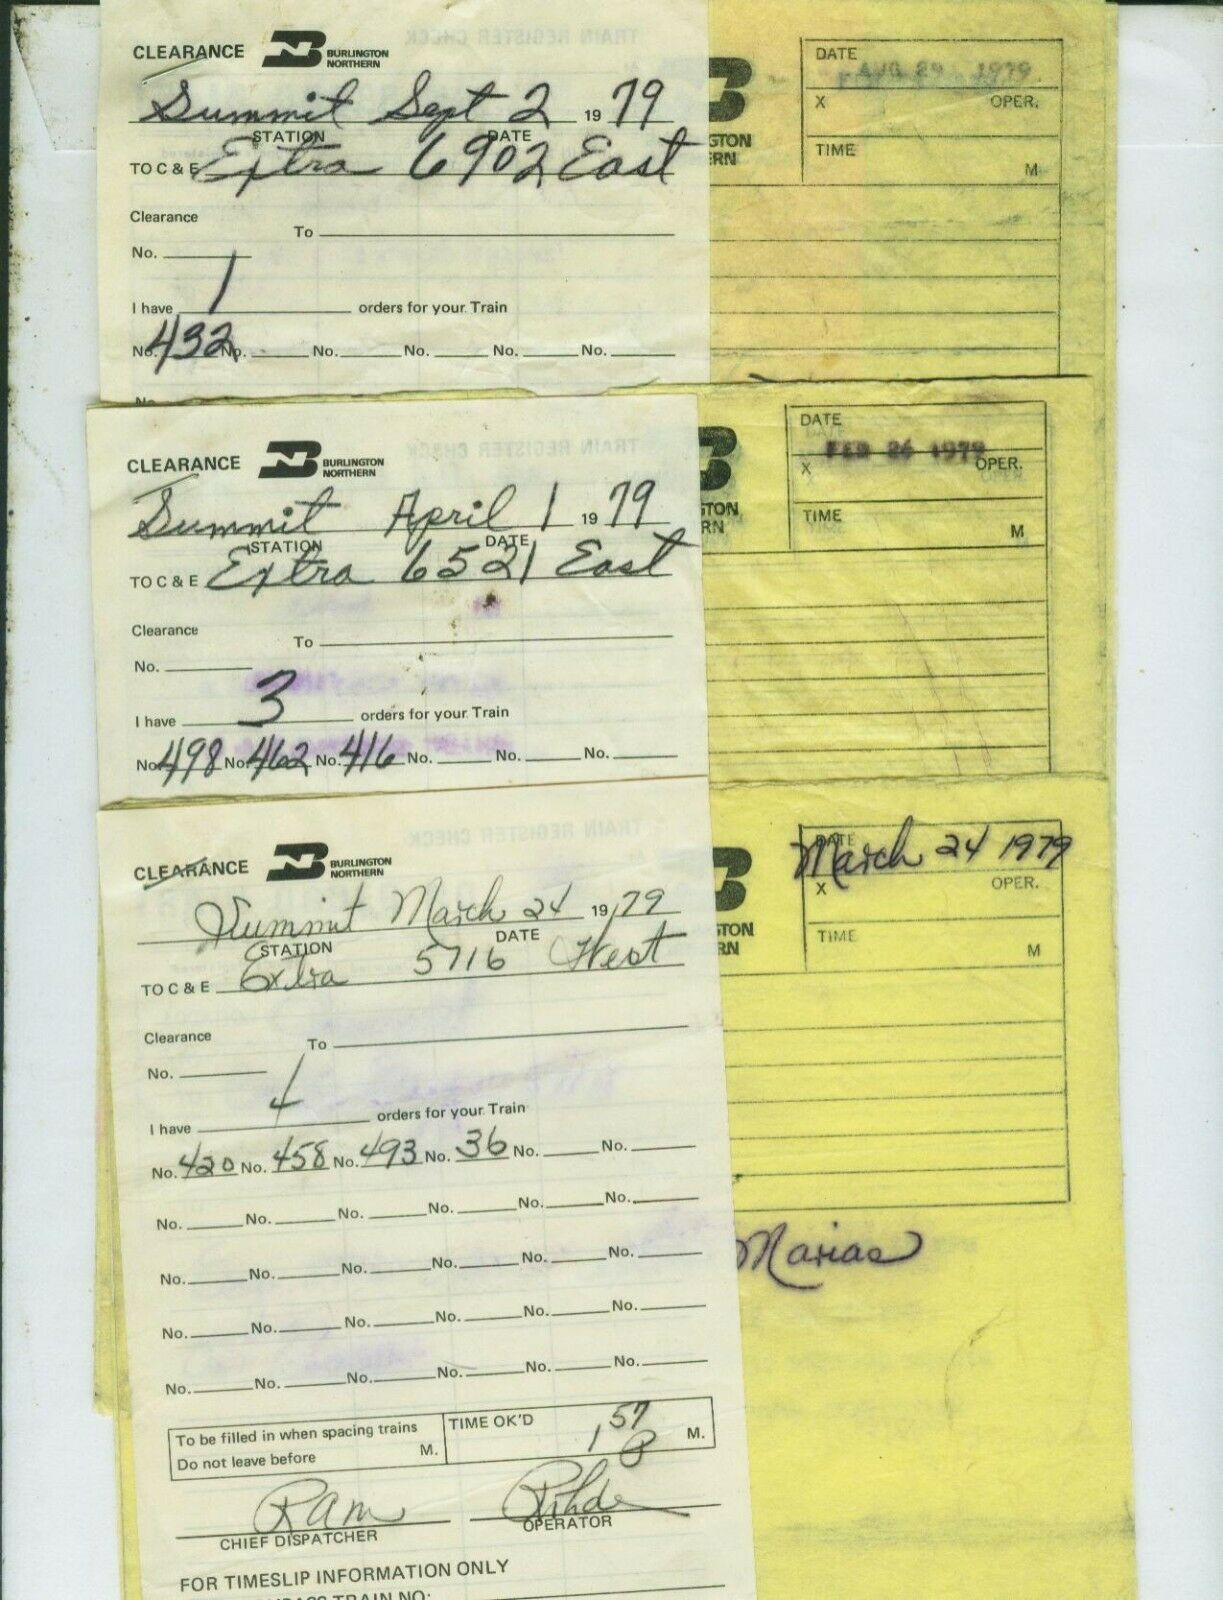 CLEARANCE BURLINGTON NORTHERN
Summit Sept 2 1979
STATION DATE
TO C & E Extra 6902 East
Clearance
No. To
I have 1 orders for your Train
No. 432 No. No. No. No. No.
No.
DATE AUG 29 1979
X OPER.
TIME
M
CLEARANCE BURLINGTON NORTHERN
Summit April 1 1979
STATION DATE
TO C & E Extra 6521 East
Clearance
No. To
I have 3 orders for your Train
No. 498 No. 462 No. 416 No. No. No.
DATE
FEB 26 1979
X OPER.
TIME
M
CLEARANCE BURLINGTON NORTHERN
Summit March 24 1979
STATION DATE
TO C & E Extra 5716 West
Clearance
No. To
I have 4 orders for your Train
No. 420 No. 458 No. 493 No. 36 No. No.
No. No. No. No. No. No.
No. No. No. No. No. No.
No. No. No. No. No. No.
No. No. No. No. No. No.
To be filled in when spacing trains
Do not leave before M.
TIME OK'D 1 57 P M.
RAM
CHIEF DISPATCHER OPERATOR
FOR TIMESLIP INFORMATION ONLY
TRAIN NO:
DATE
March 24 1979
X OPER.
TIME
M
Marias